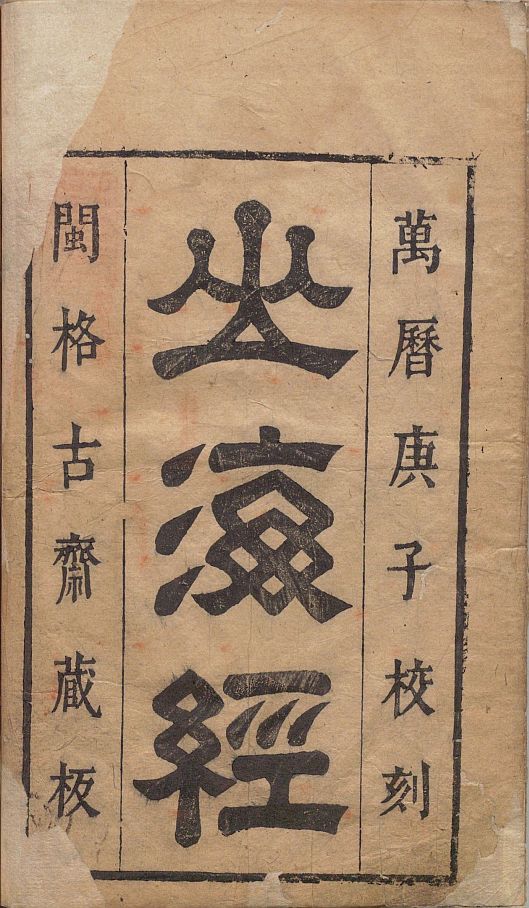 萬曆庚子校刻
山海經
閩格古齋蔵板